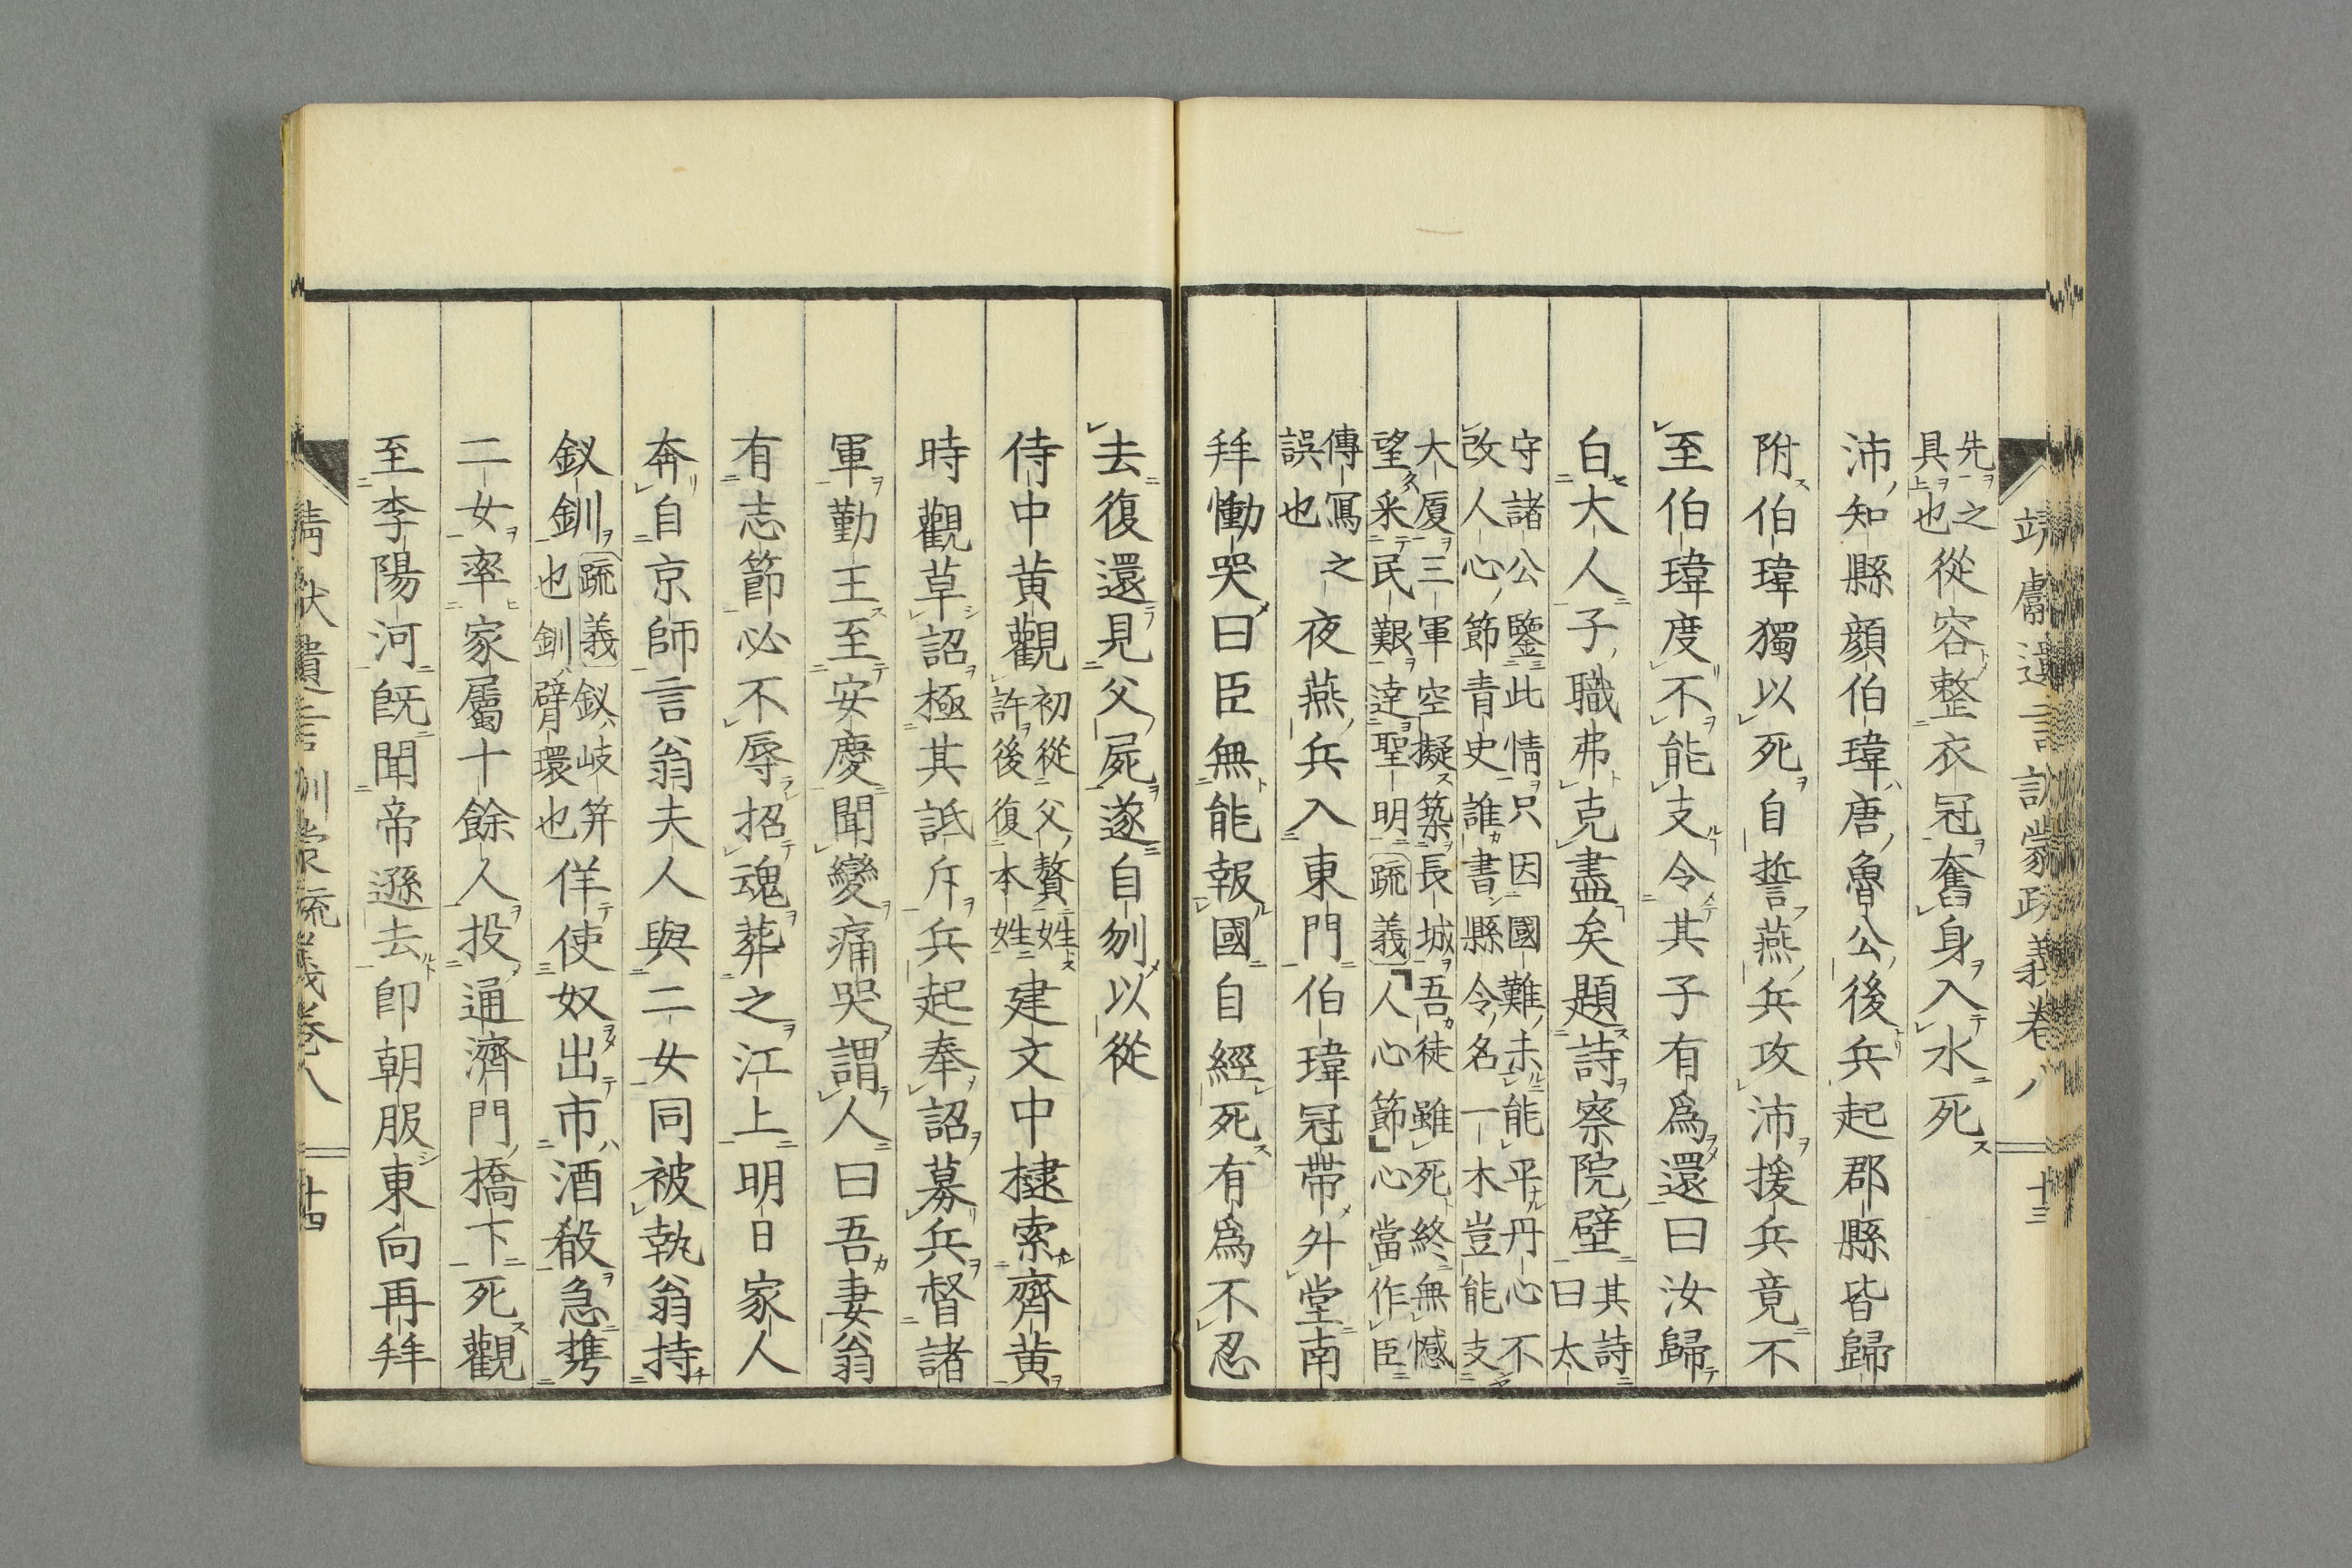 靖獻遺言訓蒙疏義卷八 十三
先之具也從容整衣冠奮身入水死
沛知縣顔伯瑋唐魯公後兵起郡縣皆歸
附伯瑋獨以死自誓燕兵攻沛援兵竟不
至伯瑋度不能支令其子有爲還曰汝歸
白大人子職弗克盡矣題詩察院壁其詩曰太
守諸公鑒此情只因國難未能平丹心不
改人心節青史誰書縣令名一木豈能支
大厦三軍空擬築長城吾徒雖死終無憾
望采民艱達聖明疏義人心節心當作臣
傳寫之
誤也
夜燕兵入東門伯瑋冠帶外堂南
拜慟哭曰臣無能報國自經死有爲不忍
去復還見父屍遂自刎以從
侍中黄觀初從父贅姓許後復本姓建文中棣索齊黄
時觀草詔極其詆斥兵起奉詔募兵督諸
軍勤王至安慶聞變痛哭謂人曰吾妻翁
有志節必不辱招魂葬之江上明日家人
奔自京師言翁夫人與二女同被執翁持
釵釧疏義釵岐笄也釧臂環也佯使奴出市酒殽急携
二女率家屬十餘人投通濟門橋下死觀
至李陽河既聞帝遜去卽朝服東向再拜
靖獻遺言訓蒙疏義卷八 十四